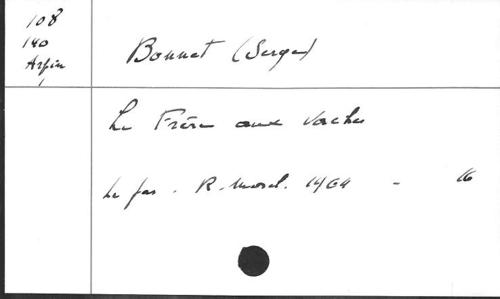 108
140
Arfin
1
Bonnet (Serge)
Le Frère aux Vaches
Le Jas. R. Morel. 1969 - 16